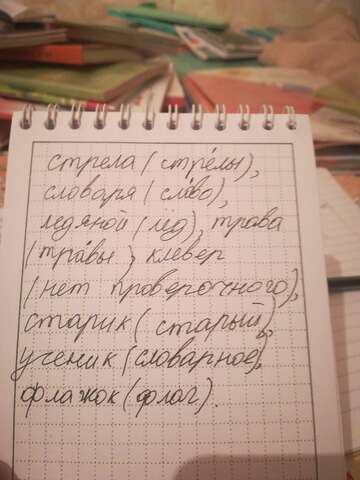 стрела (стре́лы),
словаря (сло́во),
ледяной (лёд), трава
(тра́вы), клевер
(нет проверочного),
старик (старый),
ученик (словарное),
флажок (флаг).